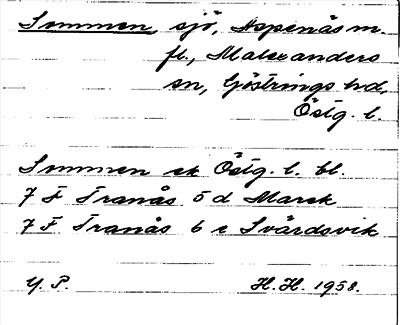 Sommen, sjö, Aspenäs m.
fl., Malexanders
sn, Göstrings hd,
Östg. l.
Sommen ek Östg. l. bl.
7 F Tranås 5 d Marek
7 F Tranås 6 e Svärdsvik
Y. P. H. H. 1958.